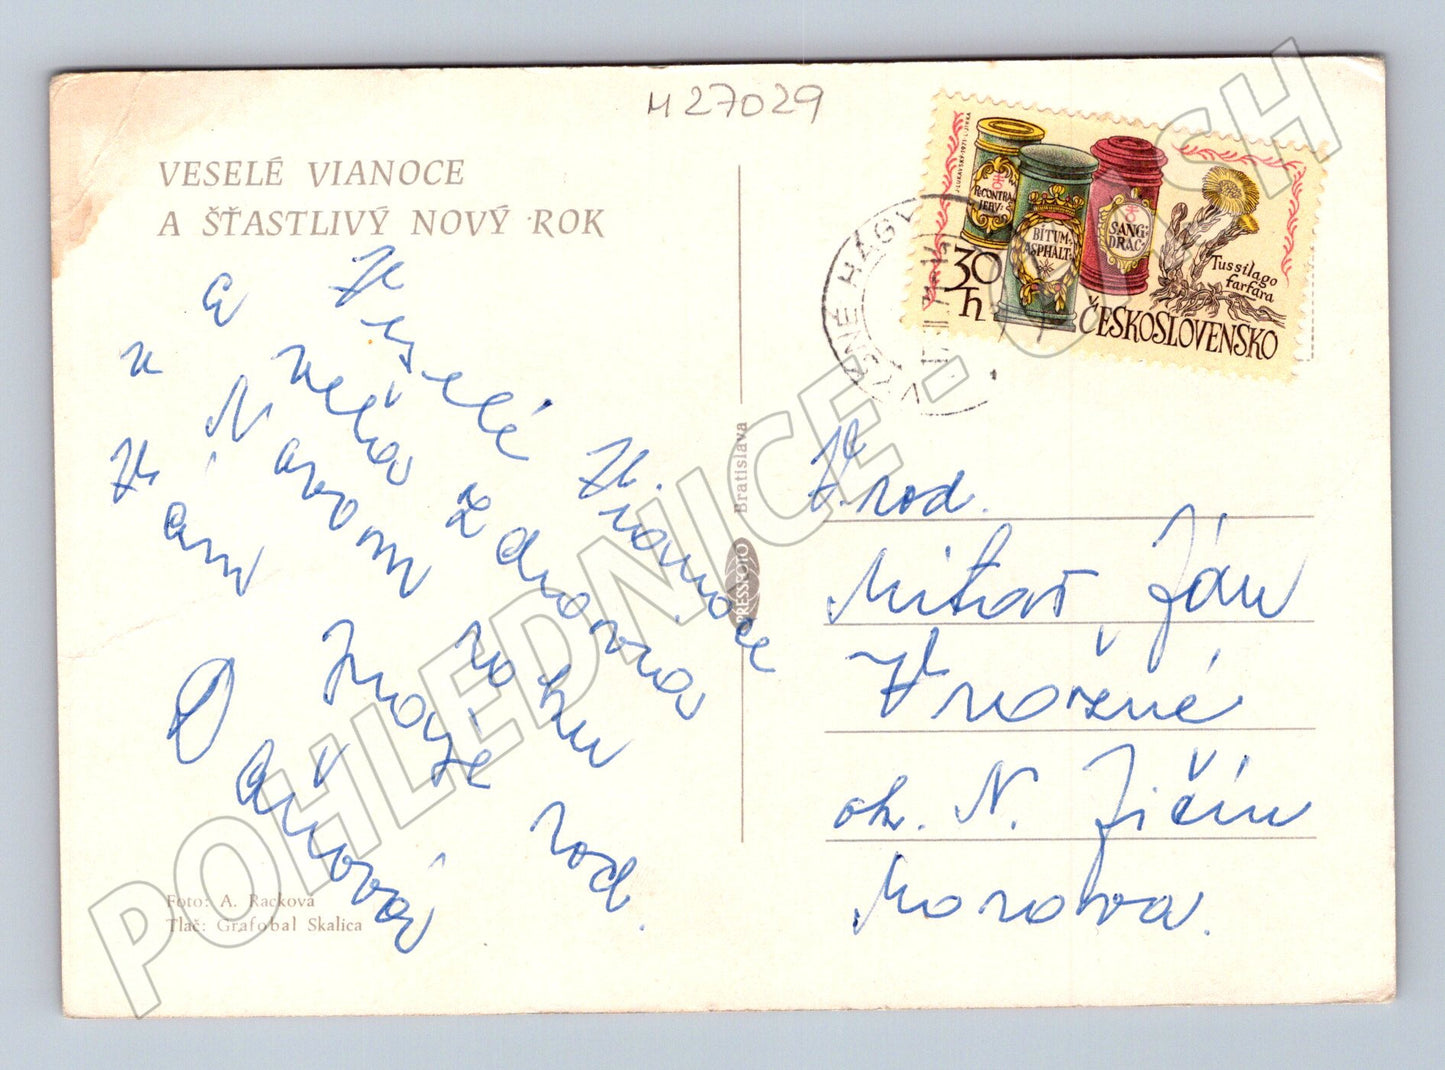 M27029
VESELÉ VIANOCE
A ŠŤASTLIVÝ NOVÝ ROK
Veselé Vianoce
a veľa zdravia
v Novom roku
Vám praje rod.
Foto: A. Racková
Tlač: Grafobal Skalica
Bratislava
PRESSFOTO
J. LUKAVSKÝ 1971 L. JIRKA
R. CONTRA
JERV:
BITUM:
ASPHALT:
SANG:
DRAC:
30
h
Tussilago
farfara
ČESKOSLOVENSKO
V. rod.
Ján
okr. N. Jičín
Morava.
POHLEDNICE - CASH